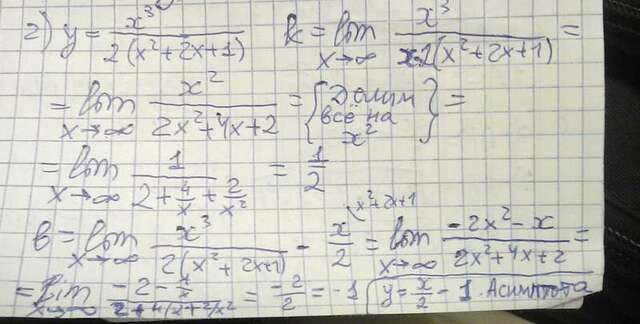 2) y = x³ / 2(x²+2x+1) k = lim x→∞ x³ / x·2(x²+2x+1) =
= lim x→∞ x² / 2x²+4x+2 = {Делим всё на x²} =
= lim x→∞ 1 / 2 + 4/x + 2/x² = 1/2
x²+2x+1
b = lim x→∞ x³ / 2(x²+2x+1) - x/2 = lim x→∞ -2x²-x / 2x²+4x+2 =
= lim x→∞ -2 - 1/x / 2+4/x+2/x² = -2/2 = -1 y = x/2 - 1. Асимптота